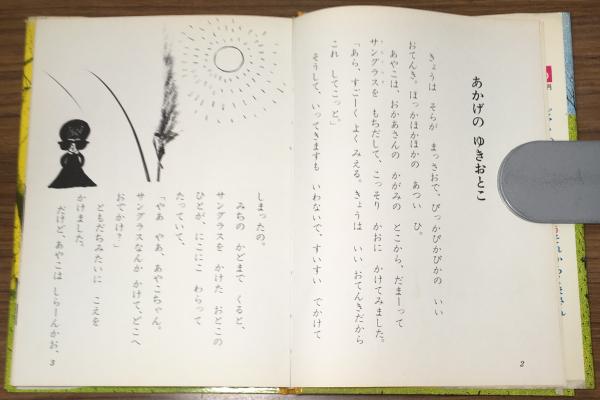 あかげの ゆきおとこ
きょうは そらが まっさおで、ぴっかぴかぴかの いい
おてんき。ほっかほかほかの あつい ひ。
あやこは、おかあさんの かがみの とこから、だまーって
サングラスを もちだして、こっそり かおに かけてみました。
「あら、すごーく よく みえる。きょうは いい おてんきだから
これ してこっと」
そうして、いってきますも いわないで、すいすい でかけて
2
しまったの。
みちの かどまで くると、
サングラスを かけた おとこの
ひとが、にこにこ わらって
たっていて、
「やあ やあ、あやこちゃん。
サングラスなんか かけて、どこへ
おでかけ？」
ともだちみたいに こえを
かけました。
だけど、あやこは しらーんかお、
3
円